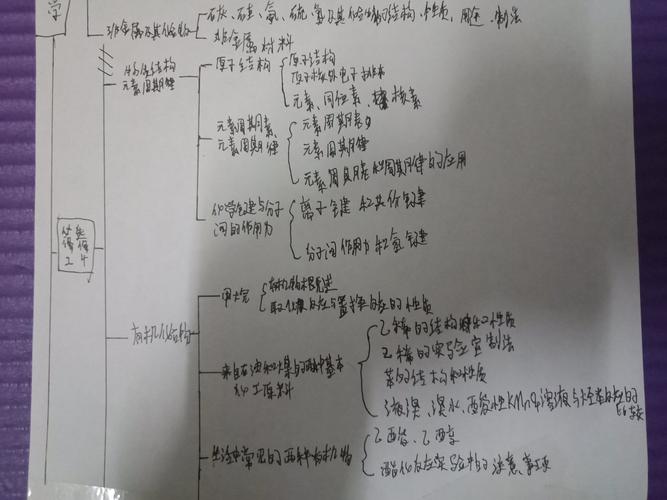 学
非金属及其化合物
碳、硅、氯、硫、氮及其化合物的结构、性质、用途、制法
无机非金属材料
物质结构
元素周期律
原子结构
原子结构
原子核外电子排布
元素、同位素、核素
元素周期表、
元素周期律
元素周期表
元素周期律
元素周期表和周期律的应用
化学键与分子
间的作用力
离子键和共价键
分子间作用力和氢键
必修2
有机化合物
甲烷
取代反应与置换反应的性质
来自石油和煤的两种基本
化工原料
乙烯的结构和性质
乙烯的实验室制法
苯的结构和性质
液溴、溴水、酸性KMnO4溶液与烃类反应的
比较
生活中常见的两种有机物
乙酸、乙醇
酯化反应实验中的注意事项